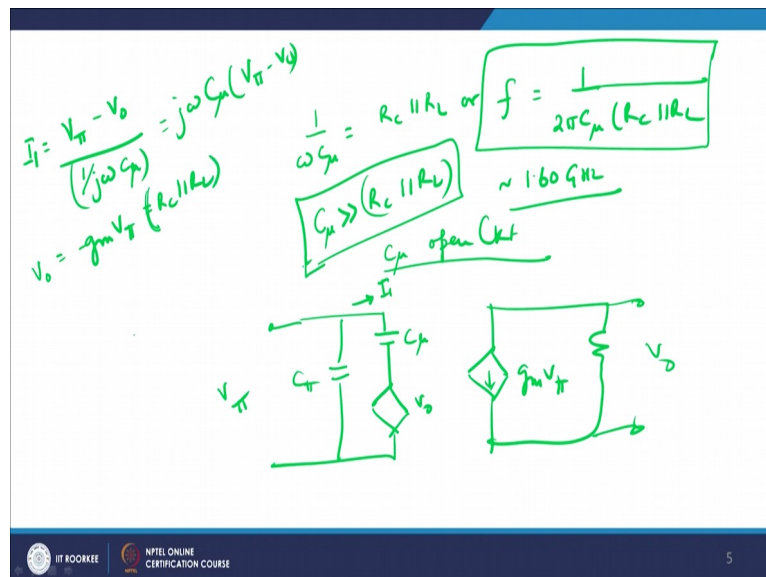 I₁ = (Vπ - V₀) / (1/jωCμ) = jωCμ(Vπ - V₀)
V₀ = gmVπ (RC||RL)
1/ωCμ = RC||RL or f = 1 / 2πCμ(RC||RL
~ 1.60 GHz
Cμ >> (RC||RL)
Cμ open Ckt
→ I₁
Cμ
Cπ
Vπ
V₀
gmVπ
V₀
IIT ROORKEE
NPTEL ONLINE
CERTIFICATION COURSE
5